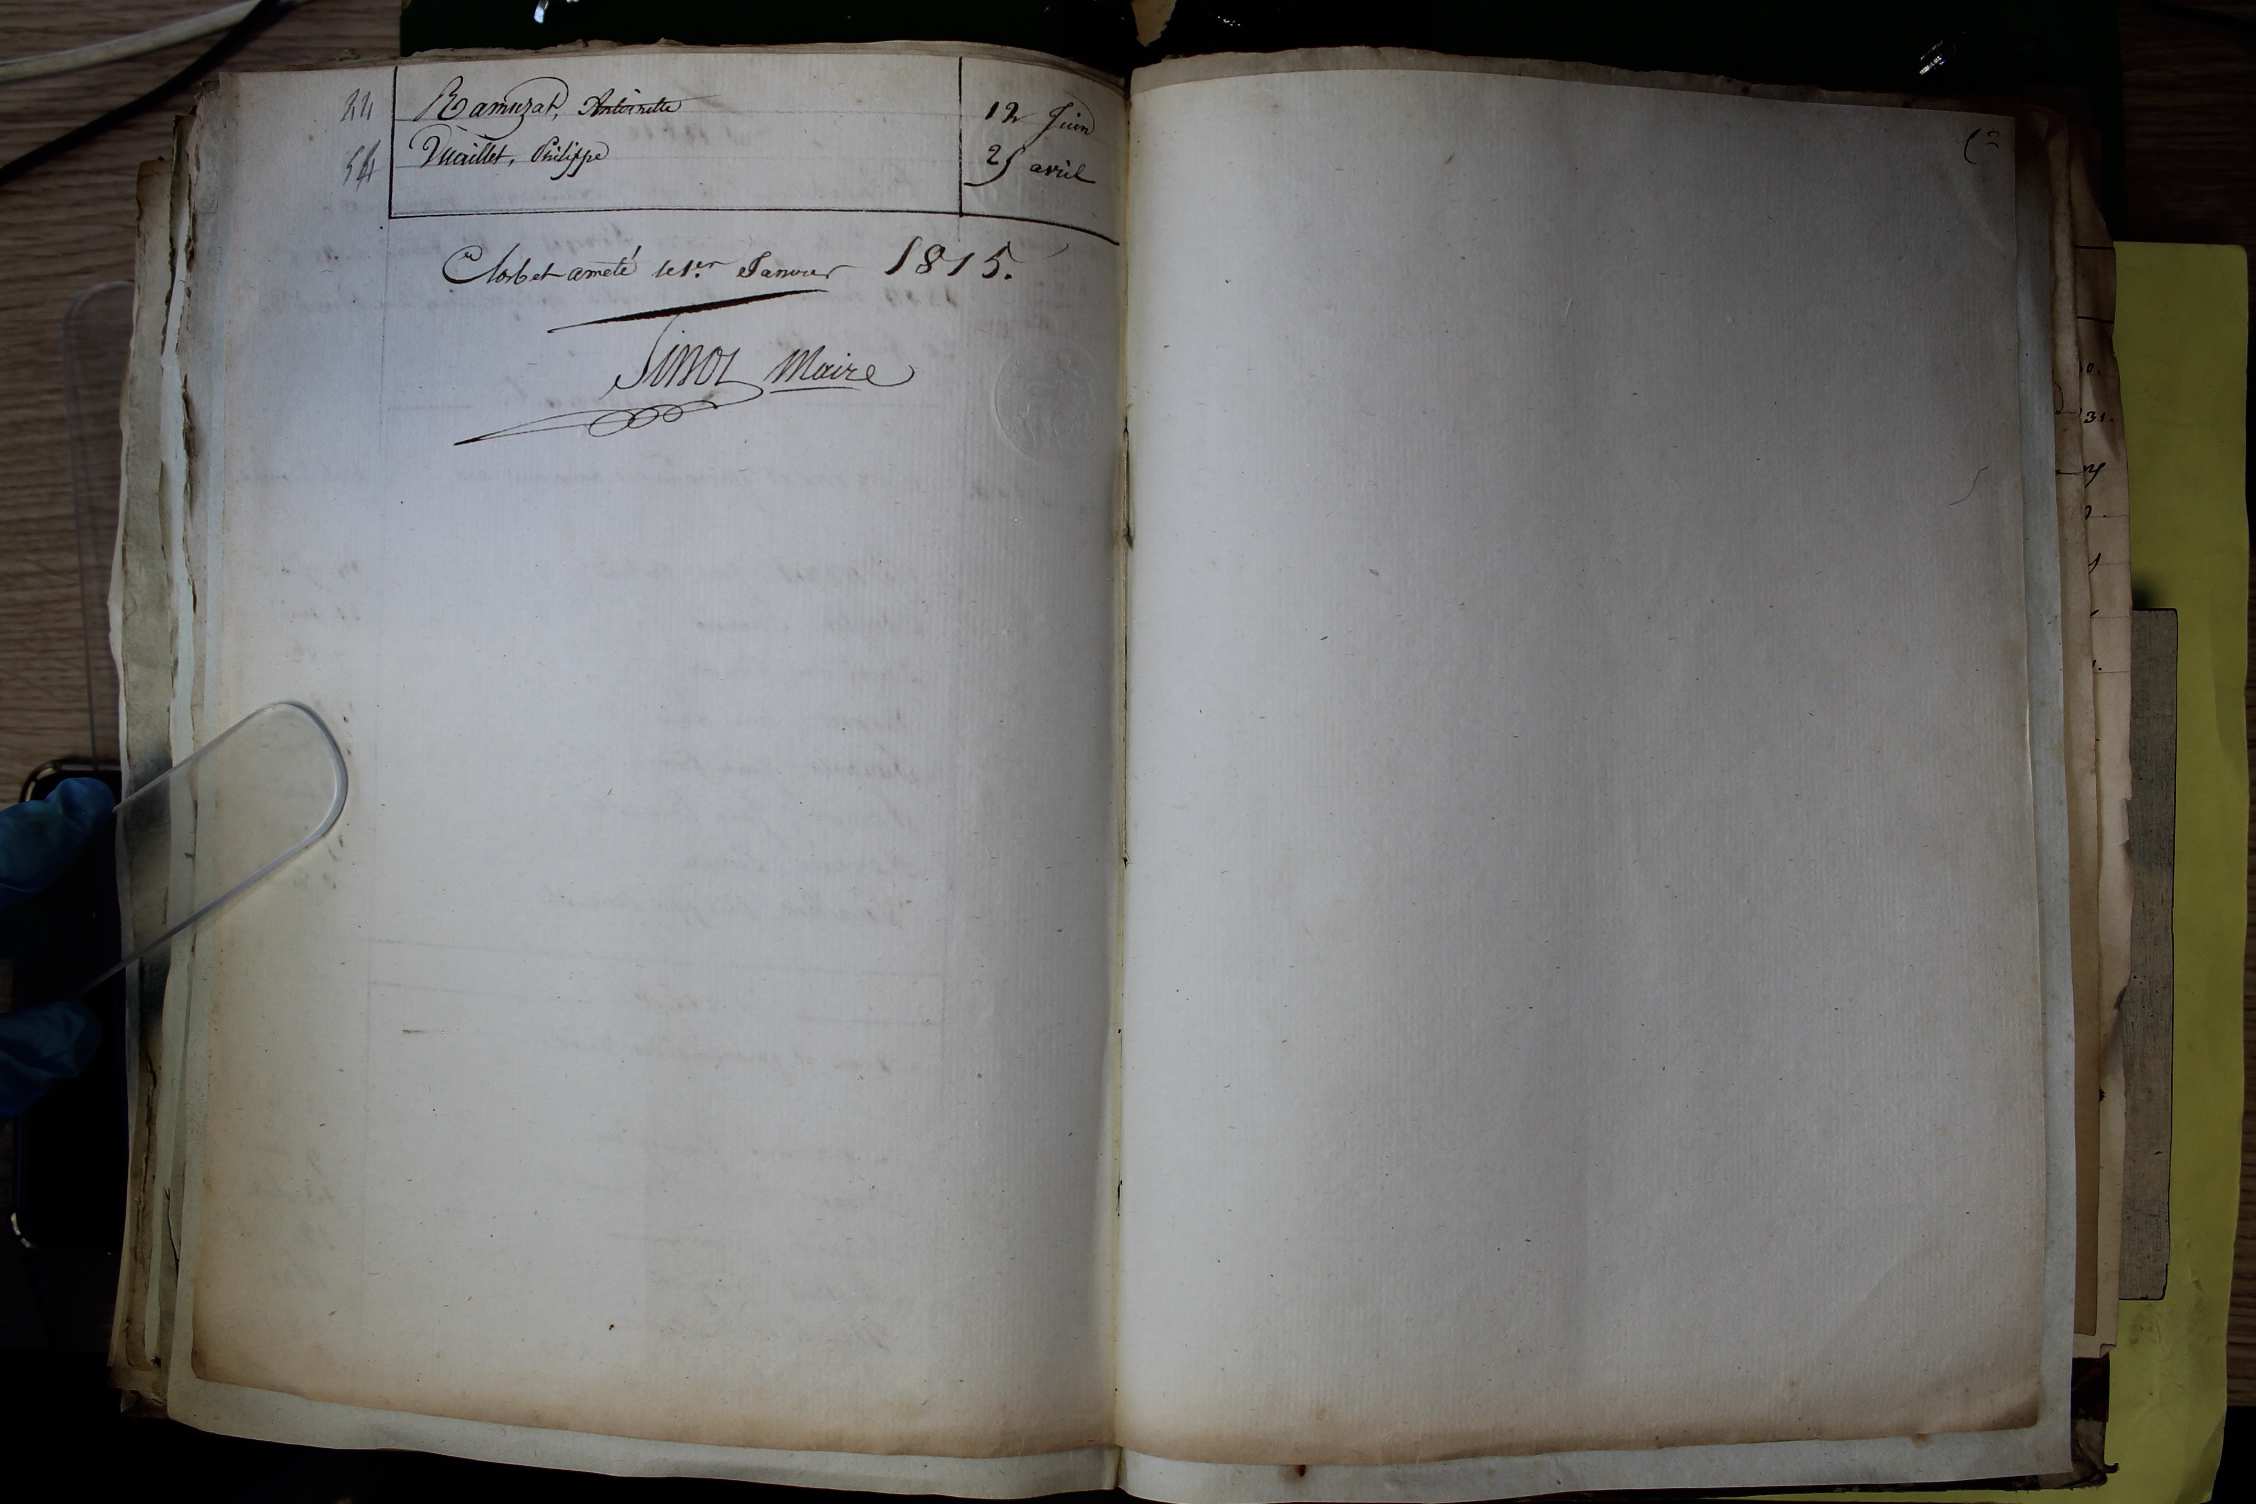 Ramuzat, Antoinette 12 Juin
Vuaillet, Philippe 25 avril
Clos et arreté le 1.er Janvier 1815.
Maire